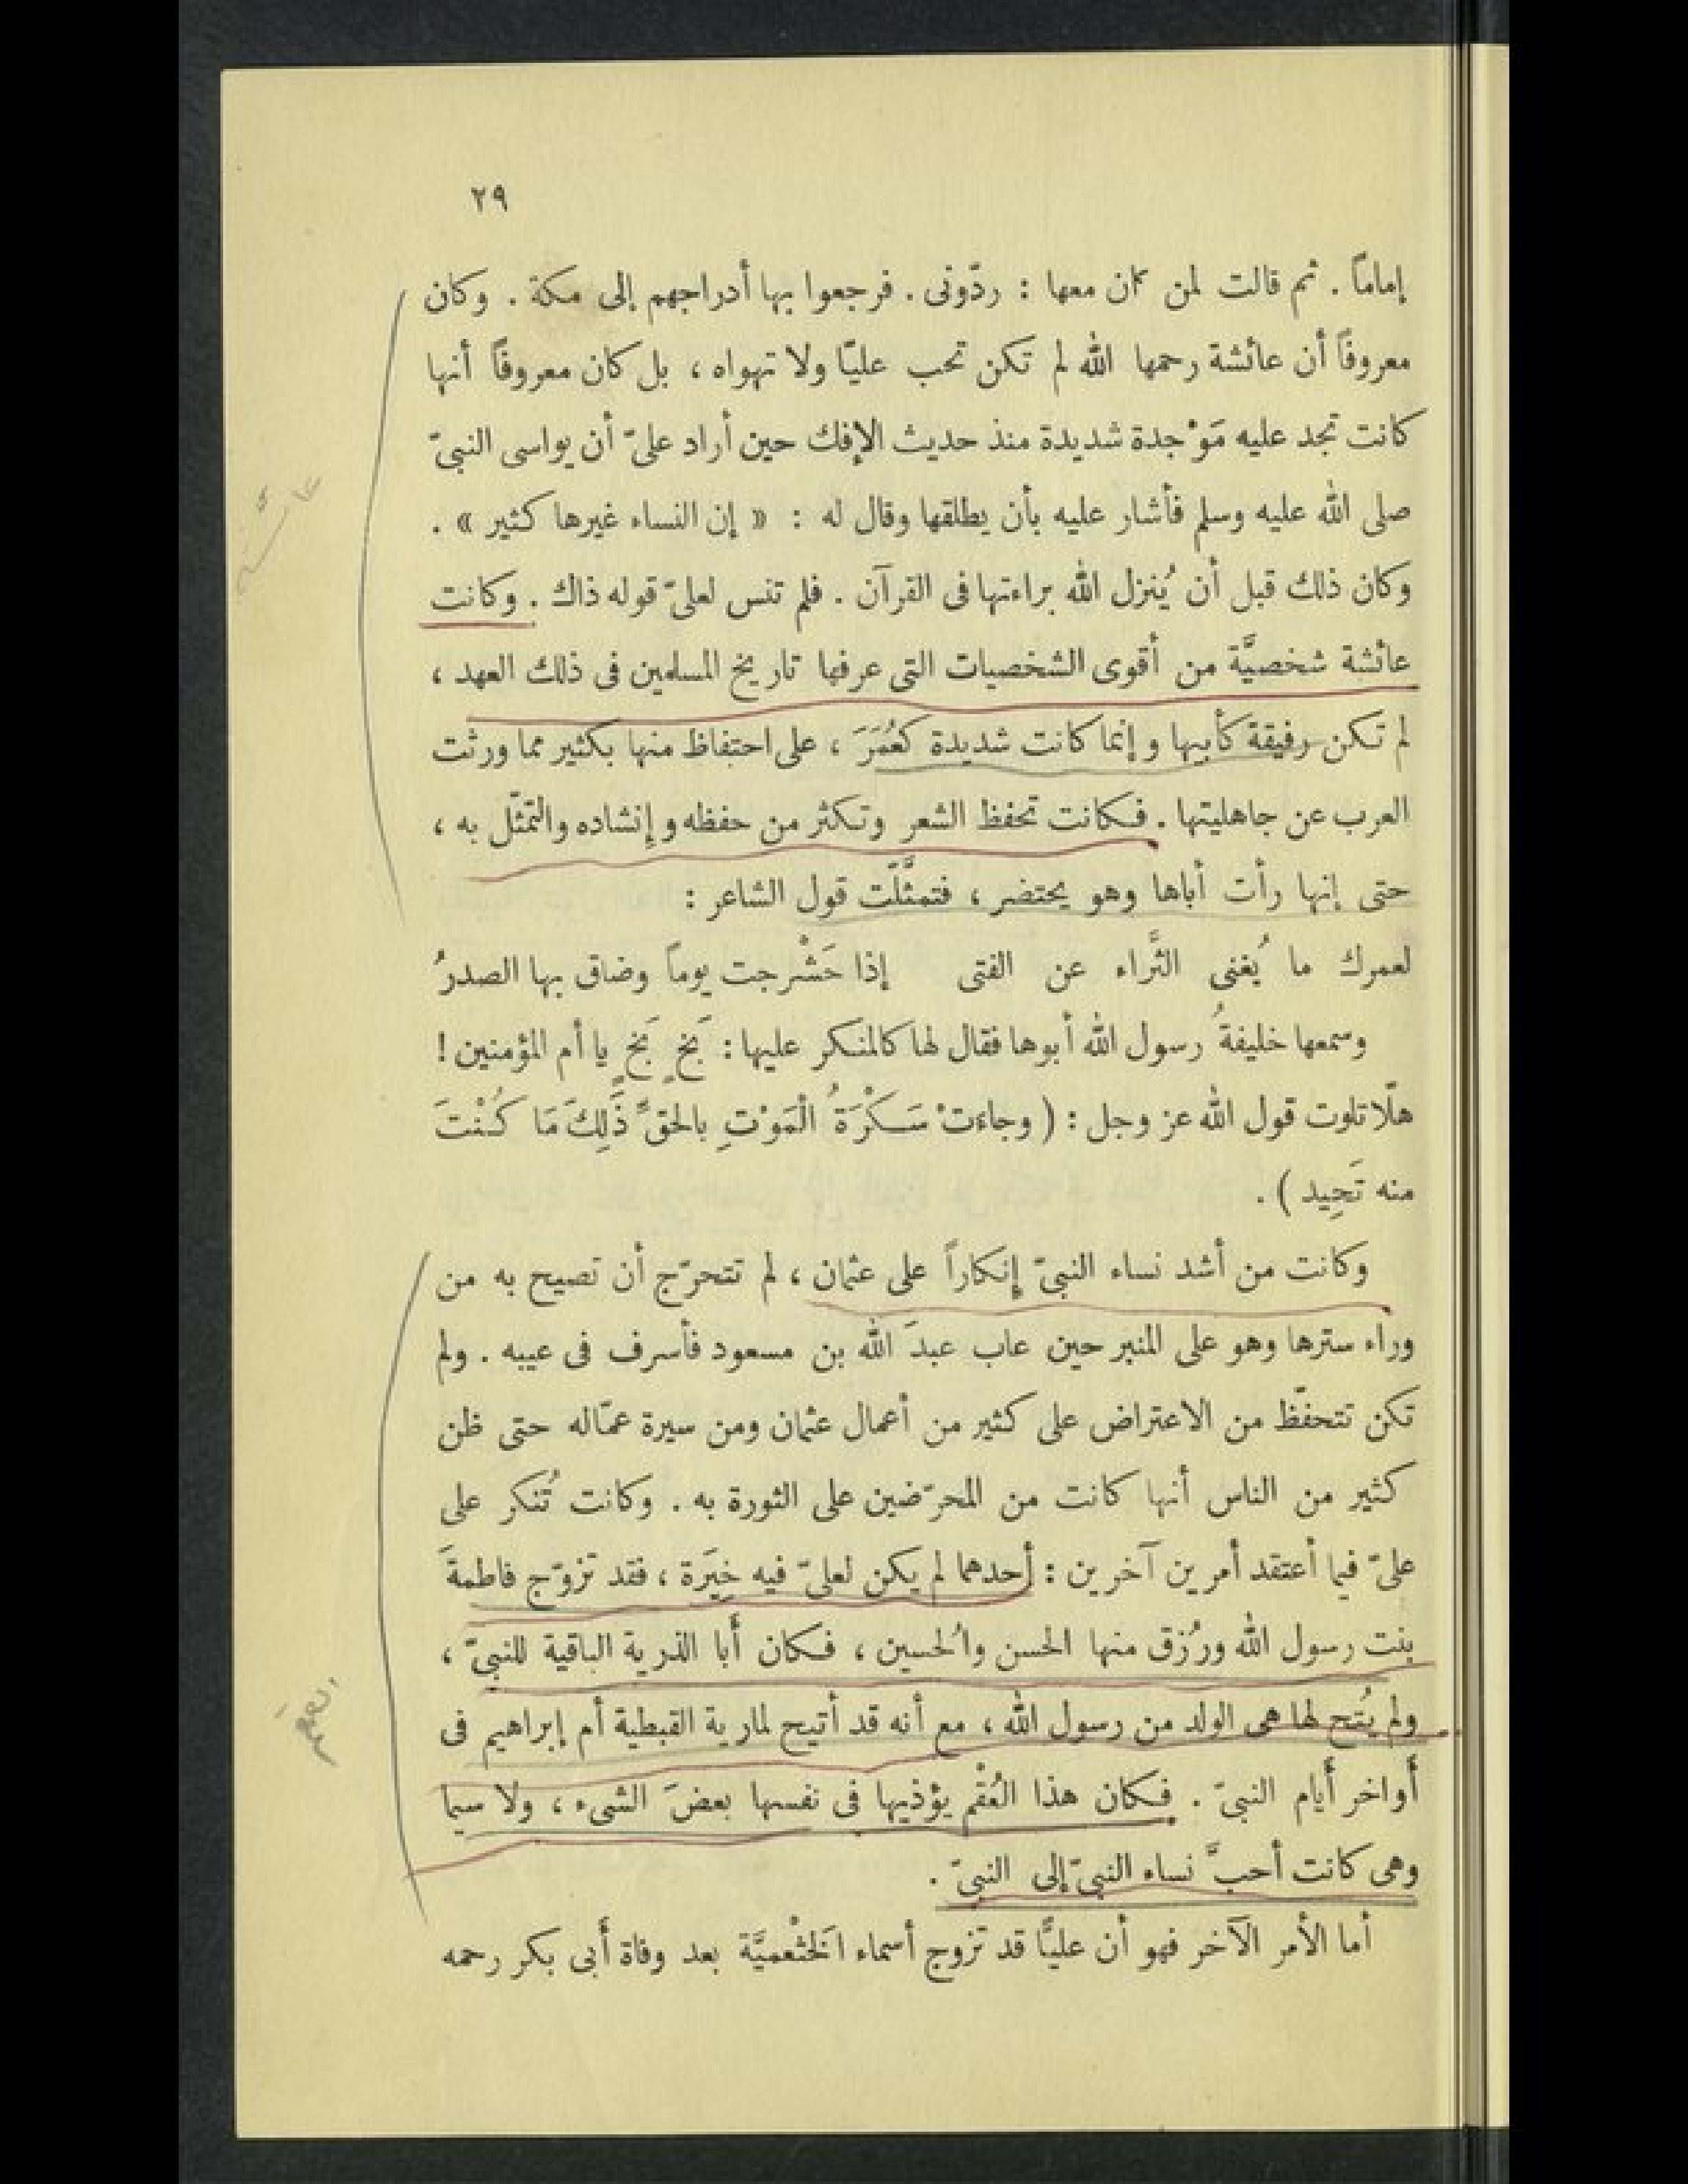 ٢٩
إماماً . ثم قالت لمن كان معها : ردّونى . فرجعوا بها أدراجهم إلى مكة . وكان
معروفاً أن عائشة رحمها الله لم تكن تحب عليّا ولا تهواه ، بل كان معروفاً أنها
كانت تجد عليه مَوْجدة شديدة منذ حديث الإفك حين أراد علىّ أن يواسى النبىّ
صلى الله عليه وسلم فأشار عليه بأن يطلقها وقال له : « إن النساء غيرها كثير » .
وكان ذلك قبل أن يُنزل الله براءتها فى القرآن . فلم تنس لعلىّ قوله ذاك . وكانت
عائشة شخصيَّة من أقوى الشخصيات التى عرفها تاريخ المسلمين فى ذلك العهد ،
لم تكن رفيقة كأبيها وإنما كانت شديدة كعُمَرَ ، على احتفاظ منها بكثير مما ورثت
العرب عن جاهليتها . فكانت تحفظ الشعر وتكثر من حفظه وإنشاده والتمثّل به ،
حتى إنها رأت أباها وهو يحتضر ، فتمثَّلّت قول الشاعر :
لعمرك ما يُغنى الثَّراء عن الفتى إذا حَشْرجت يوماً وضاق بها الصدرُ
وسمعها خليفةُ رسول الله أبوها فقال لها كالمنكر عليها : بَخٍ بَخٍ يا أم المؤمنين !
هلّا تلوت قول الله عز وجل : ( وجاءتْ سَكْرَةُ الْمَوْتِ بالحقِّ ذَلِكَ مَا كُنْتَ
منه تَحِيد ) .
وكانت من أشد نساء النبىّ إنكاراً على عثمان ، لم تتحرّج أن تصيح به من
وراء سترها وهو على المنبر حين عاب عبدَ الله بن مسعود فأسرف فى عيبه . ولم
تكن تتحفّظ من الاعتراض على كثير من أعمال عثمان ومن سيرة عمّاله حتى ظن
كثير من الناس أنها كانت من المحرّضين على الثورة به . وكانت تُنكر على
علىّ فيما أعتقد أمرين آخرين : أحدهما لم يكن لعلىّ فيه خِيَرة ، فقد تزوّج فاطمةَ
بنت رسول الله ورُزق منها الحسن والحسين ، فكان أبا الذرية الباقية للنبىّ ،
ولم يُتح لها هى الولد من رسول الله ، مع أنه قد أتيح لمارية القبطية أم إبراهيم فى
أواخر أيام النبىّ . فكان هذا العُقْم يؤذيها فى نفسها بعضَ الشىء ، ولا سيما
وهى كانت أحبَّ نساء النبىّ إلى النبىّ .
أما الأمر الآخر فهو أن عليًّا قد تزوج أسماء الخَثْعميَّة بعد وفاة أبى بكر رحمه
عائشة